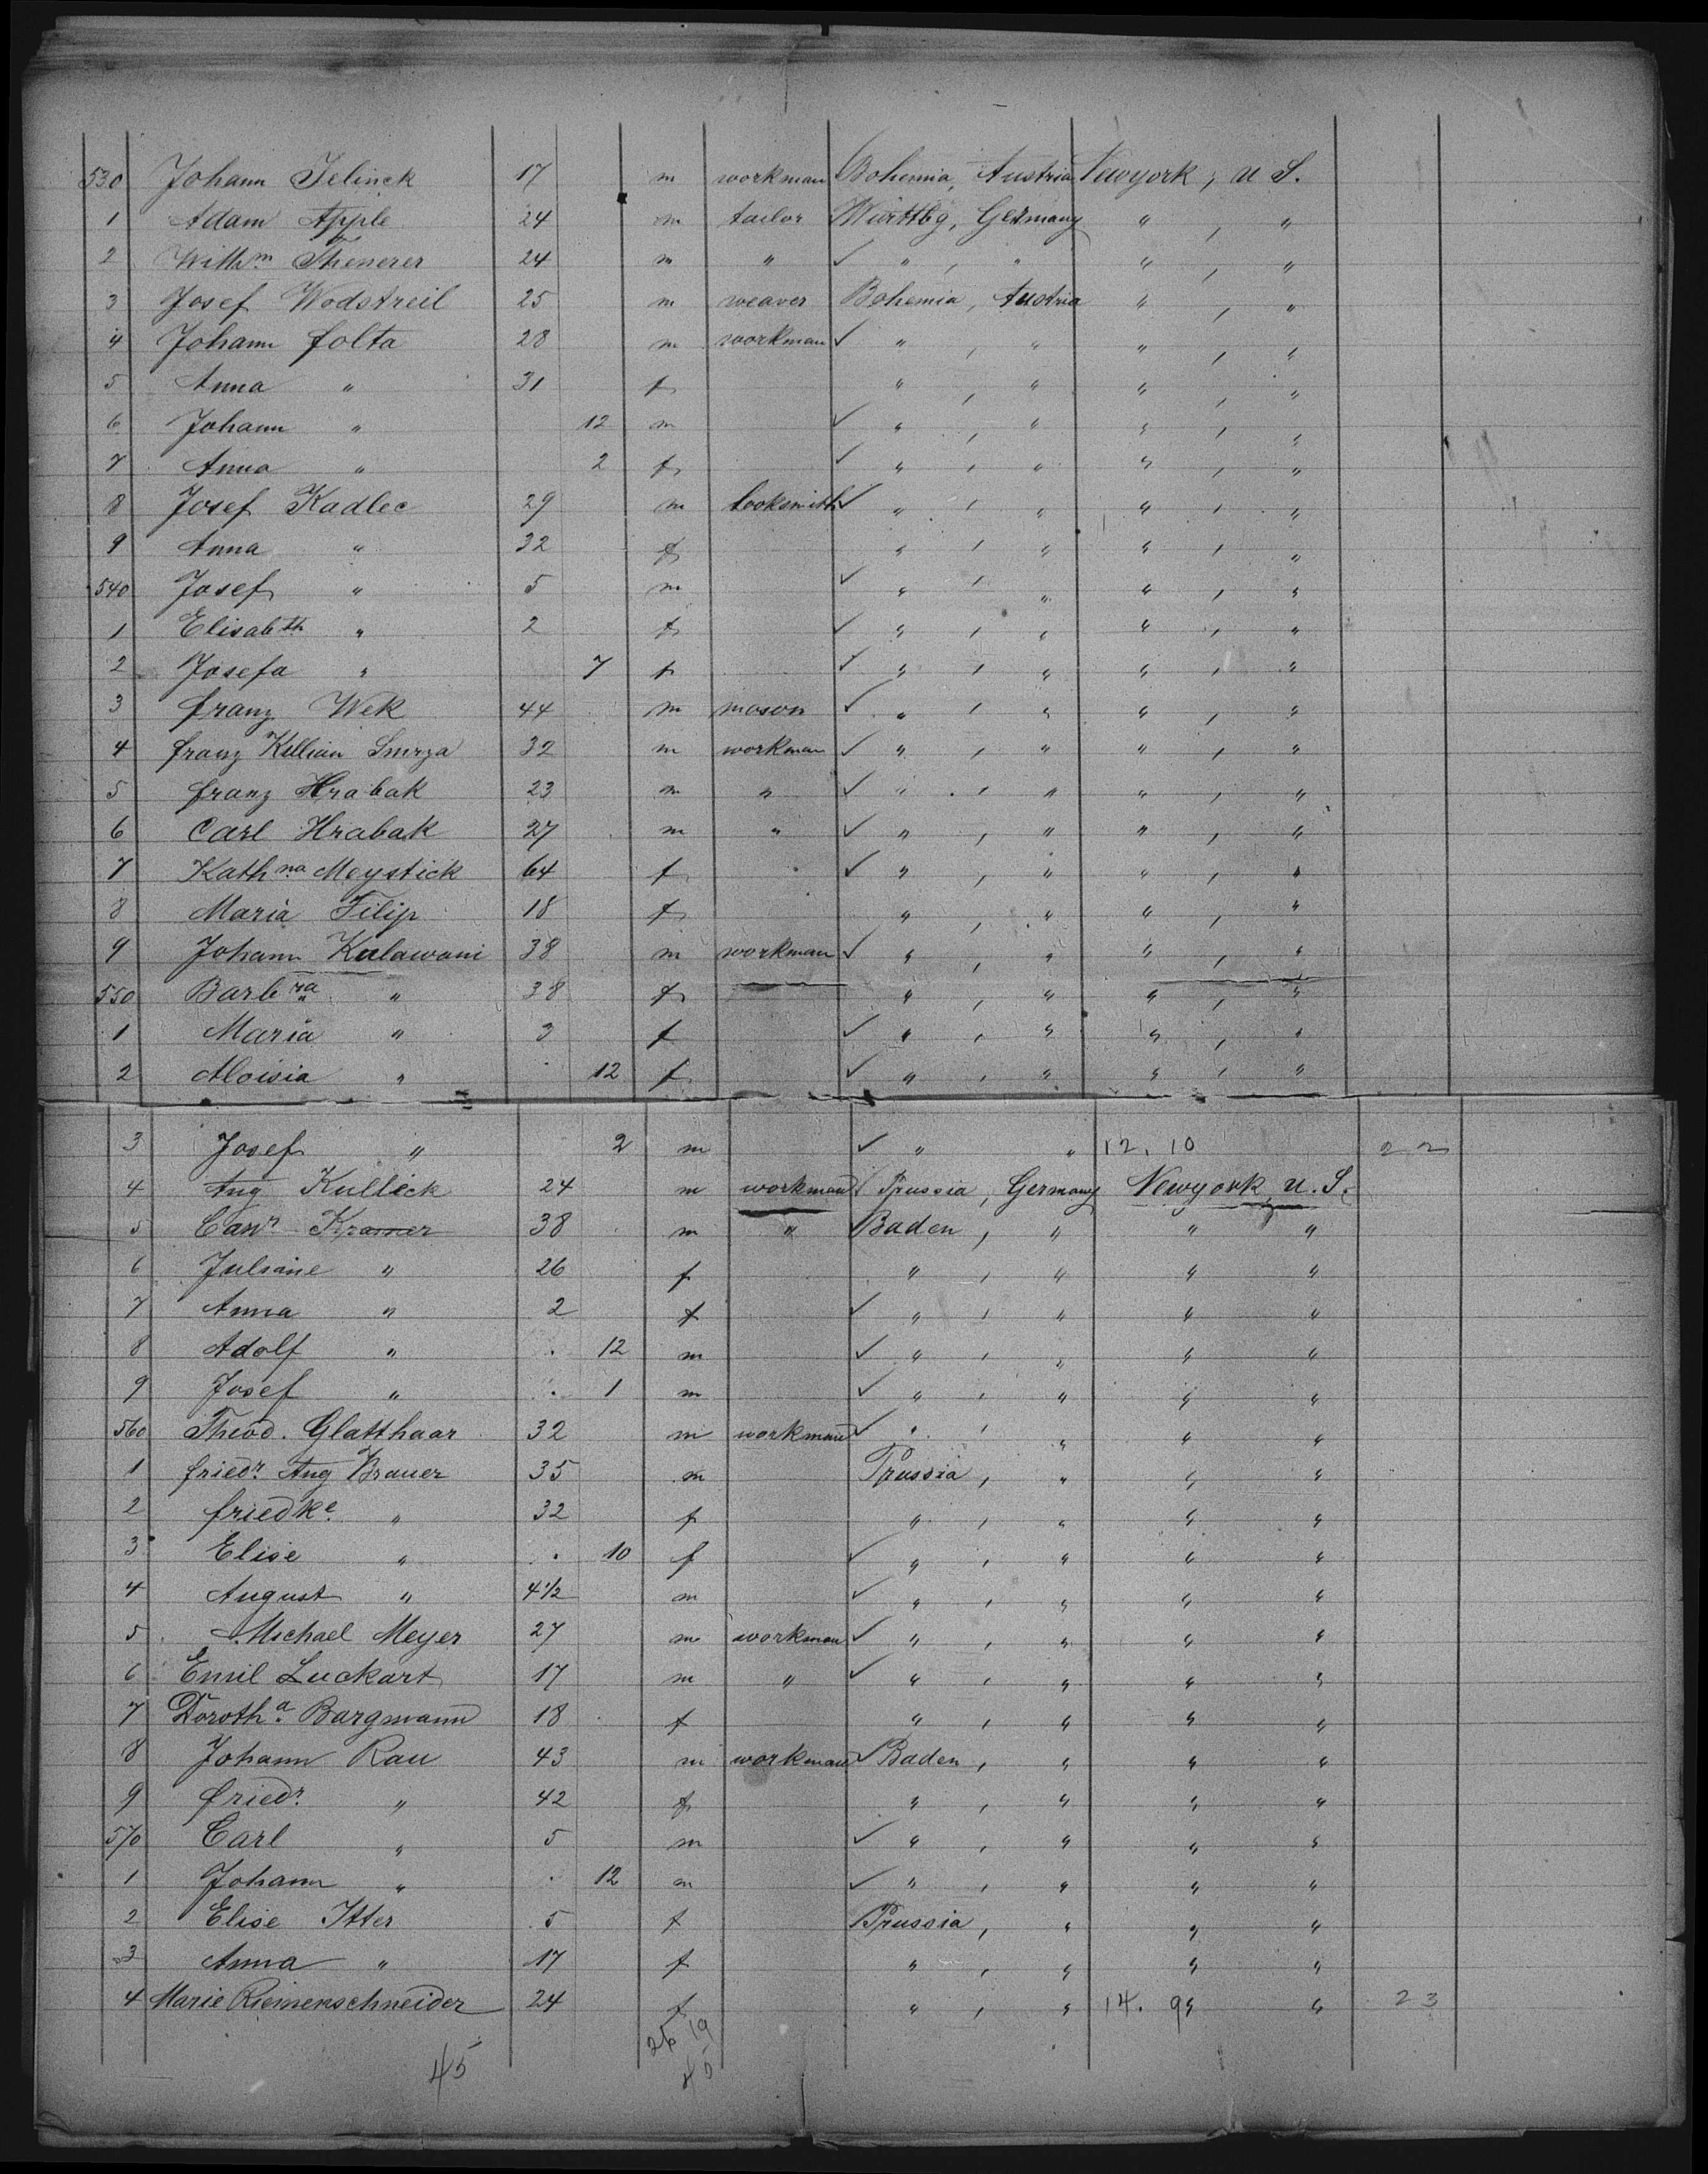 530 Johann Jelinek 17 m workman Bohemia, Austria Newyork, U S.
1 Adam Apple 24 m tailor Württbg, Germany " , "
2 Wilhm Thenerer 24 m " ✓ " , " " , "
3 Josef Wodstreil 25 m weaver Bohemia, Austria " , "
4 Johann Folta 28 m workman ✓ " , " " , "
5 Anna " 31 f " , " " , "
6 Johann " 12 m ✓ " , " " , "
7 Anna " 2 f ✓ " , " " , "
8 Josef Kadlec 29 m looksmith ✓ " , " " , "
9 Anna " 32 f " , " " , "
540 Josef " 5 m ✓ " , " " , "
1 Elisabth " 2 f ✓ " , " " , "
2 Josefa " 7 f ✓ " , " " , "
3 Franz Wek 44 m mason ✓ " , " " , "
4 Franz Killian Smrza 32 m workman ✓ " , " " , "
5 Franz Hrabak 23 m " ✓ " , " " , "
6 Carl Hrabak 27 m " ✓ " , " " , "
7 Kathna Meystick 64 f ✓ " , " " , "
8 Maria Filip 18 f " , " " , "
9 Johann Kulawani 38 m workman ✓ " , " " , "
550 Barbra " 38 f " , " " , "
1 Maria " 3 f ✓ " , " " , "
2 Aloisia " 12 f ✓ " , " " , "
3 Josef " 2 m ✓ " " 12. 10 22
4 Aug Kulleck 24 m workman ✓ Prussia, Germany Newyork, U. S.
5 Kramer 38 m " Baden , " " "
6 Juliane " 26 f " , " " "
7 Anna " 2 f ✓ " , " " "
8 Adolf " . 12 m ✓ " , " " "
9 Josef " . 1 m ✓ " , " " "
560 Theod. Glatthaar 32 m workman ✓ " , " " "
1 Friedr. Aug Brauer 35 m Prussia, " " "
2 Friedke " 32 f " , " " "
3 Elise " . 10 f ✓ " , " " "
4 August " 4 1/2 m ✓ " , " " "
5 Michael Meyer 27 m workman ✓ " , " " "
6 Emil Luckart 17 m " ✓ " , " " "
7 Dorotha Bargmann 18 f " , " " "
8 Johann Rau 43 m workman ✓ Baden , " " "
9 Friedr. " 42 f " , " " "
570 Carl " 5 m ✓ " , " " "
1 Johann " . 12 m ✓ " , " " "
2 Elise Itter 5 f Prussia, " " "
3 Anna " 17 f " , " " "
4 Marie Riemenschneider 24 f " , " 14. 9 " " 23
26 19
45 45